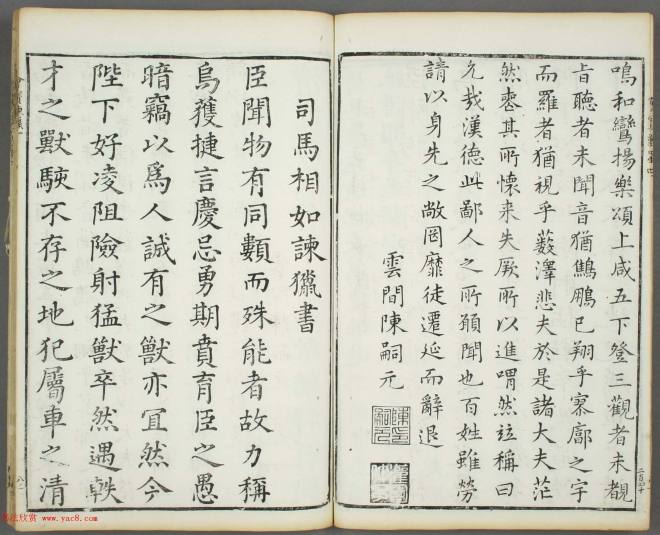 鳴和鸞揚樂頌上咸五下登三觀者未覩
旨聽者未聞音猶鷦鵬已翔乎寥廓之宇
而羅者猶視乎藪澤悲夫於是諸大夫茫
然喪其所懷来失厥所以進喟然竝稱曰
允哉漢德此鄙人之所願聞也百姓雖勞
請以身先之敞罔靡徒遷延而辭退
雲間陳嗣元
司馬相如諫獵書
臣聞物有同類而殊能者故力稱
烏獲捷言慶忌勇期賁育臣之愚
暗竊以為人誠有之獸亦宜然今
陛下好凌阻險射猛獸卒然遇軼
才之獸駭不存之地犯屬車之清
書法欣赏 www.yac8.com